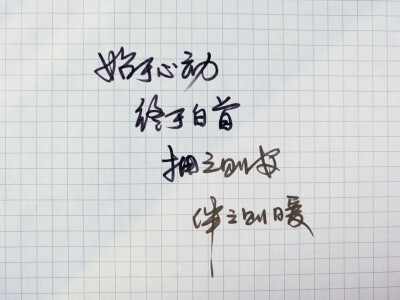 始于心动
终于白首
拥之则安
伴之则暖